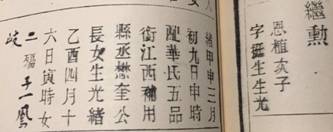 繼勳
恩植次子
字挺生生光
緒甲申三月
初九日申時
配黃氏五品
銜江西補用
縣丞懋奎公
長女生光緒
乙酉四月十
六日寅時女
二 子一鳳
岐